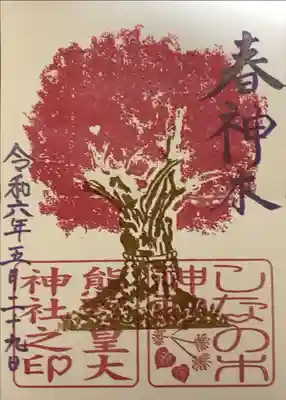 春神木
しなの木
神
熊野皇大
神社之印
令和六年五月二十九日